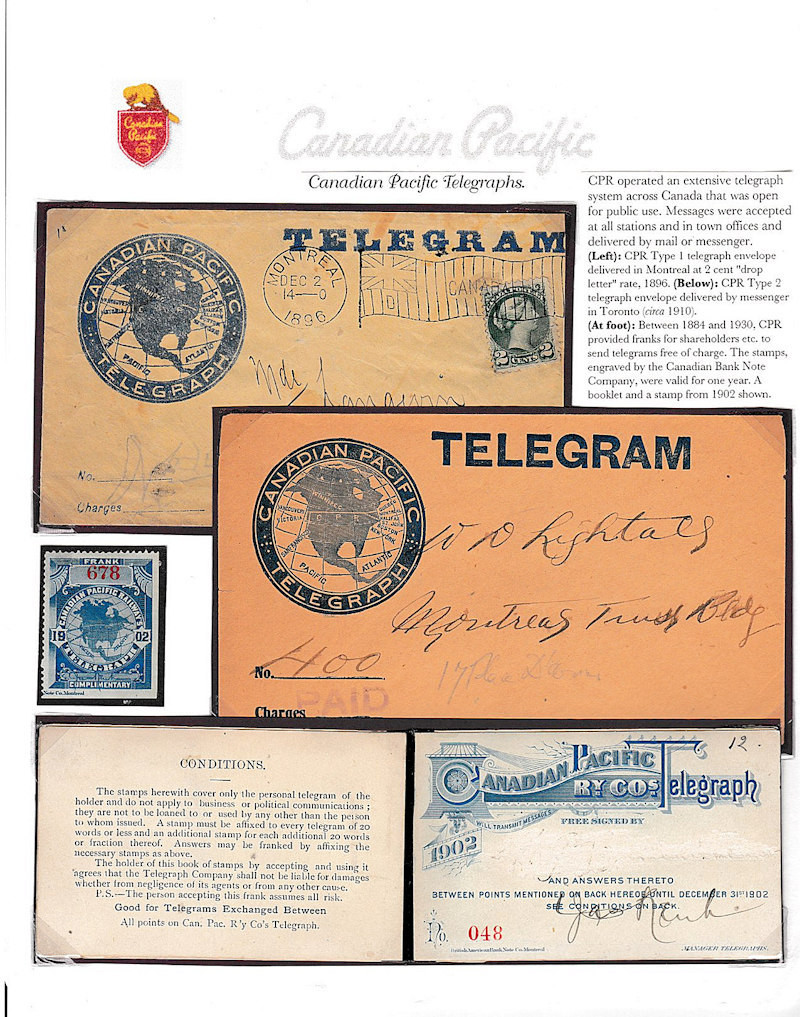 Canadian
Pacific
Canadian Pacific
Canadian Pacific Telegraphs.
CPR operated an extensive telegraph
system across Canada that was open
for public use. Messages were accepted
at all stations and in town offices and
delivered by mail or messenger.
(Left): CPR Type 1 telegraph envelope
delivered in Montreal at 2 cent "drop
letter" rate, 1896. (Below): CPR Type 2
telegraph envelope delivered by messenger
in Toronto (circa 1910).
(At foot): Between 1884 and 1930, CPR
provided franks for shareholders etc. to
send telegrams free of charge. The stamps,
engraved by the Canadian Bank Note
Company, were valid for one year. A
booklet and a stamp from 1902 shown.
TELEGRAM
CANADIAN PACIFIC
TELEGRAPH
PACIFIC
ATLANTIC
MONTREAL
DEC 2
14-0
1896
CANADA
2 CENTS 2
No.
Charges
TELEGRAM
CANADIAN PACIFIC
TELEGRAPH
WINNIPEG
C P R
VANCOUVER
VICTORIA
SAN FRANCISCO
QUEBEC
MONTREAL
HALIFAX
ST JOHN
BOSTON
NEW YORK
PACIFIC
ATLANTIC
W D Lighthall
Montreal Trust Bldg
No. 400
Charges PAID
FRANK
678
CANADIAN PACIFIC RAILWAY'S
1902
TELEGRAPH
COMPLIMENTARY
Note Co. Montreal
CONDITIONS.
The stamps herewith cover only the personal telegram of the
holder and do not apply to business or political communications ;
they are not to be loaned to or used by any other than the person
to whom issued. A stamp must be affixed to every telegram of 20
words or less and an additional stamp for each additional 20 words
or fraction thereof. Answers may be franked by affixing the
necessary stamps as above.
The holder of this book of stamps by accepting and using it
agrees that the Telegraph Company shall not be liable for damages
whether from negligence of its agents or from any other cause.
P.S.—The person accepting this frank assumes all risk.
Good for Telegrams Exchanged Between
All points on Can. Pac. R'y Co's Telegraph.
12.
CANADIAN PACIFIC
RY CO'S Telegraph
WILL TRANSMIT MESSAGES
FREE SIGNED BY
1902
AND ANSWERS THERETO
BETWEEN POINTS MENTIONED ON BACK HEREOF UNTIL DECEMBER 31ST 1902
SEE CONDITIONS ON BACK.
No. 048
British American Bank Note Co. Montreal
MANAGER TELEGRAPHS.